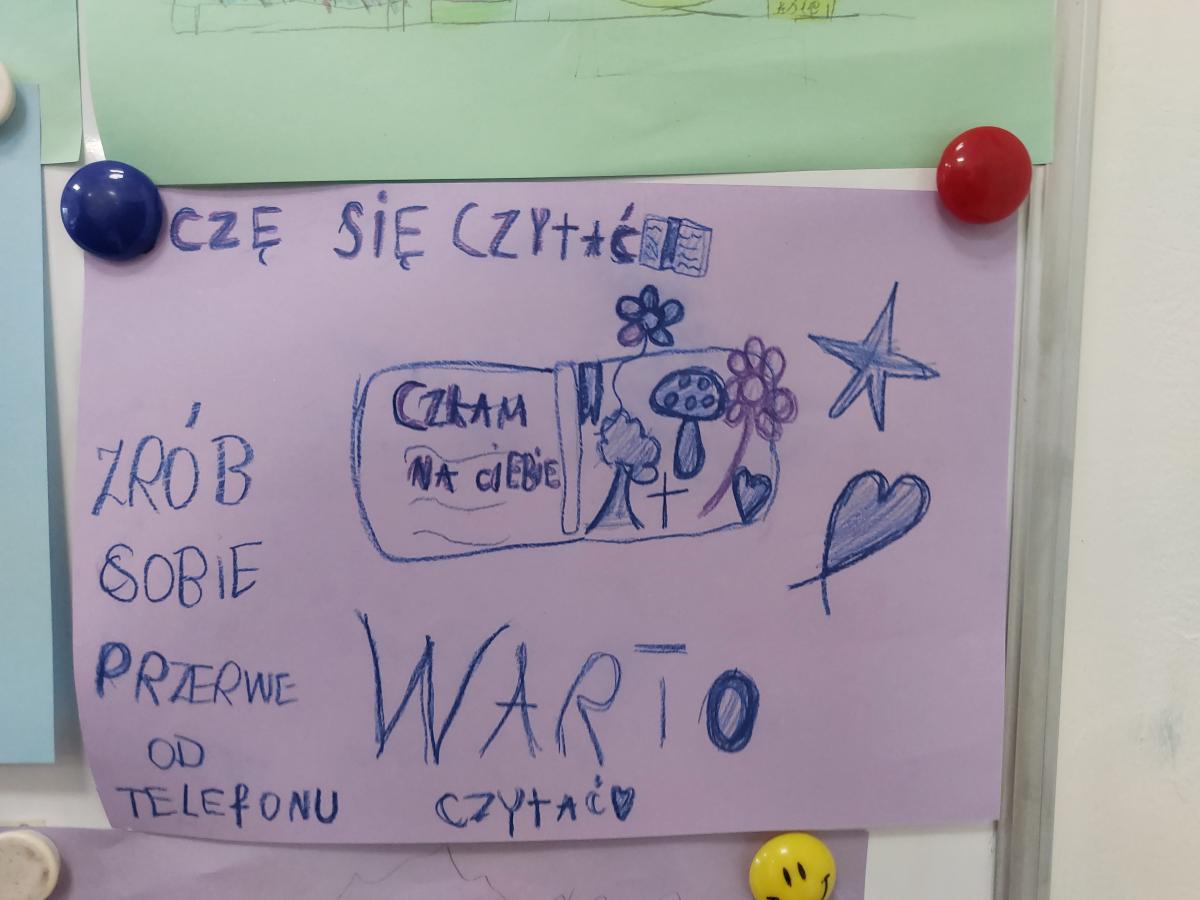 CZĘ SIĘ CZYtAĆ
CZKAM
NA CIEBIE
ZRÓB
SOBIE
PRZERWE
OD
TELEFONU
WARTO
CZYtAĆ